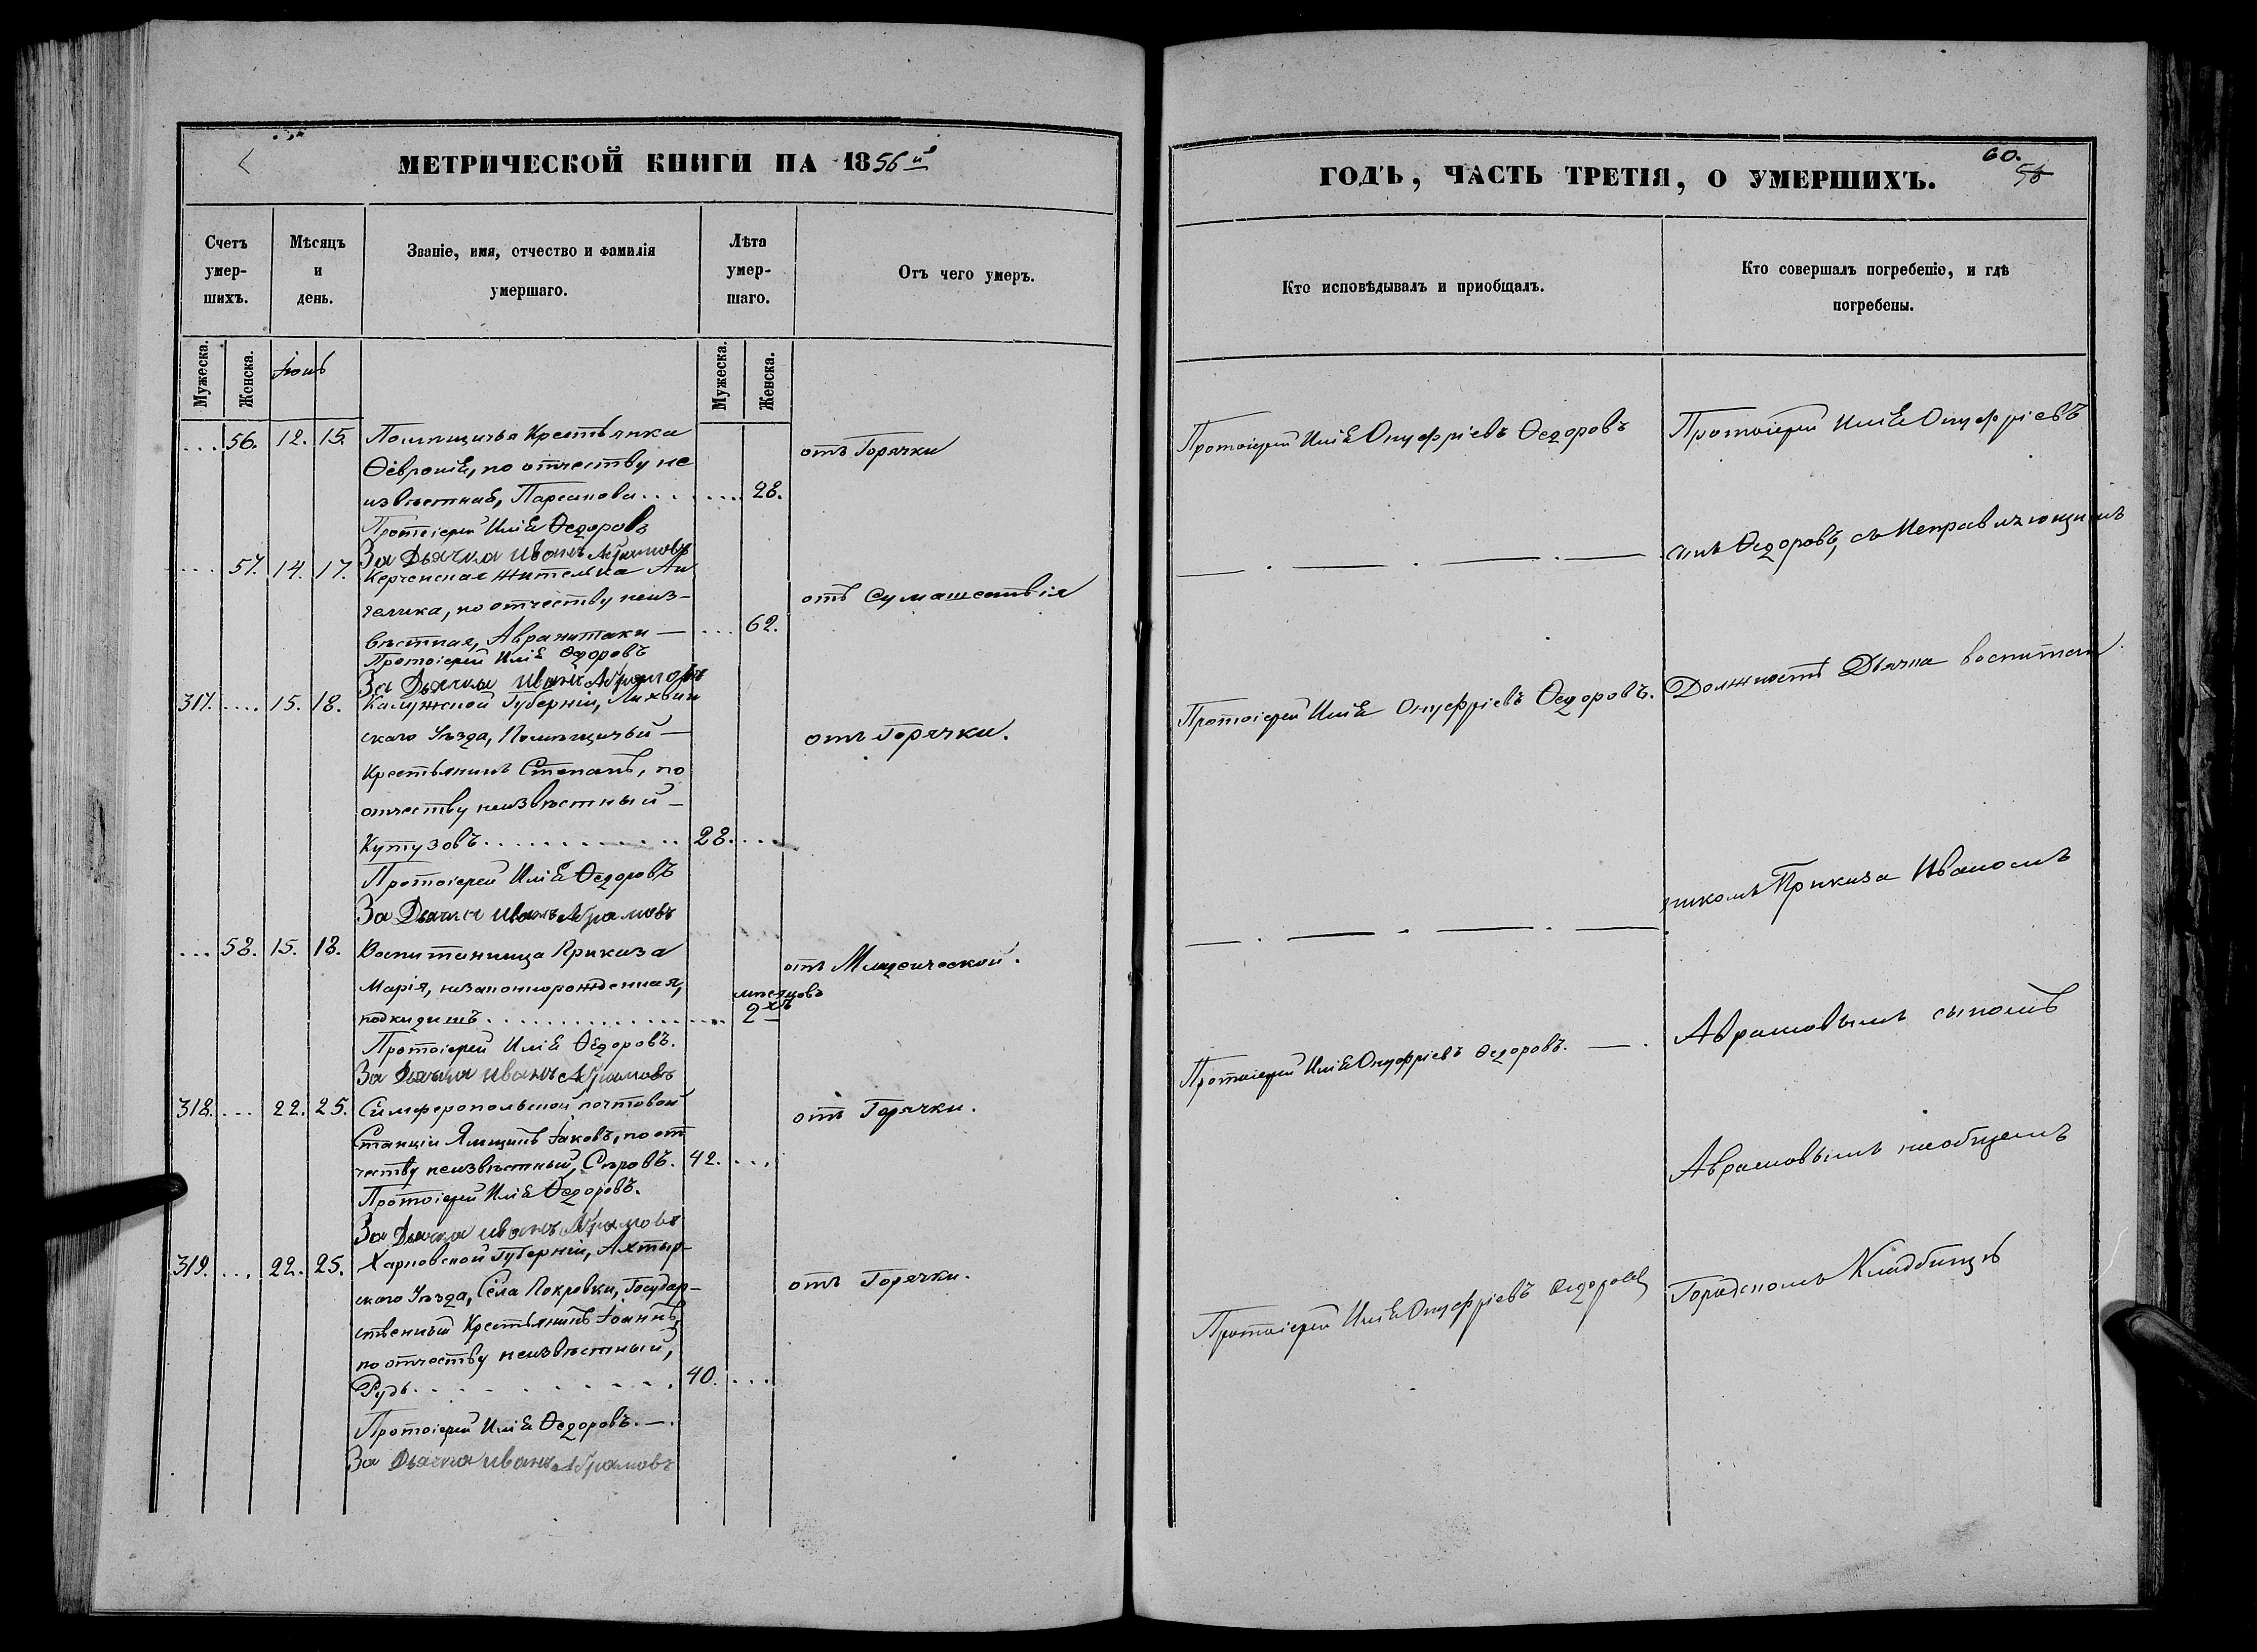 МЕТРИЧЕСКОЙ КНИГИ НА 1856й
Счетъ умер-шихъ.
Мѣсяцъ и день.
Званіе, имя, отчество и фамилія умершаго.
Лѣта умер-шаго.
Отъ чего умеръ.
Мужеска.
Женска.
Іюнь
Мужеска.
Женска.
... 56. 12. 15. Помѣщичья Крестьянка
Ѳеврониѣ, по отчеству не
извѣстная, Парсанова ... 28.
отъ Горячки
Протоіерей Иліа Ѳедоровъ
За Дьячка Иванъ Абрамовъ
... 57. 14. 17. Керченская жителька Ан
гелика, по отчеству неиз-
вѣстная, Авранитаки — ... 62.
отъ Сумашествія
Протоіерей Иліа Ѳедоровъ
За Дьячка Иванъ Абрамовъ
317. ... 15. 18. Калужской Губерніи, Лихвин
скаго Уѣзда, Помѣщичьй —
Крестьянинъ Степанъ, по
отчеству неизвѣстный —
Кутузовъ ... 28. ...
отъ Горячки.
Протоіерей Иліа Ѳедоровъ
За Дьячка Иванъ Абрамовъ
... 58. 15. 18. Воспитанница Приказа
Марія, незаконнорожденная,
подкидышъ ... мѣсяцовъ 2хъ
отъ Младенческой.
Протоіерей Иліа Ѳедоровъ.
За Дьячка Иванъ Абрамовъ
318. ... 22. 25. Симферопольской почтовой
Станціи Ямщикъ Іаковъ, по от
честву неизвѣстный, Сѣровъ. 42. ...
отъ Горячки.
Протоіерей Иліа Ѳедоровъ.
За Дьячка Иванъ Абрамовъ
319. ... 22. 25. Харковской Губерніи, Ахтыр-
скаго Уѣзда, Села Покровки, Государ-
ственный Крестьянинъ Іоаннъ,
по отчеству неизвѣстный,
Рудь ... 40. ...
отъ Горячки.
Протоіерей Иліа Ѳедоровъ. —.
За Дьячка Иванъ Абрамовъ
ГОДЪ, ЧАСТЬ ТРЕТІЯ, О УМЕРШИХЪ.
60.
58
Кто исповѣдывалъ и приобщалъ.
Кто совершалъ погребеніе, и гдѣ погребены.
Протоіерей Иліа Онуфріевъ Ѳедоровъ
Протоіерей Иліа Онуфріевъ
— . — . — . —
сынъ Ѳедоровъ, съ Исправляющимъ
Протоіерей Иліа Онуфріевъ Ѳедоровъ.
Должность Дьячка воспитан
— . — . — . — .
никомъ Приказа Иваномъ
Протоіерей Иліа Онуфріевъ Ѳедоровъ. — .
Абрамовымъ сыномъ
Абрамовымъ наобщемъ
Протоіерей Иліа Онуфріевъ Ѳедоровъ
Городскомъ Кладбищѣ